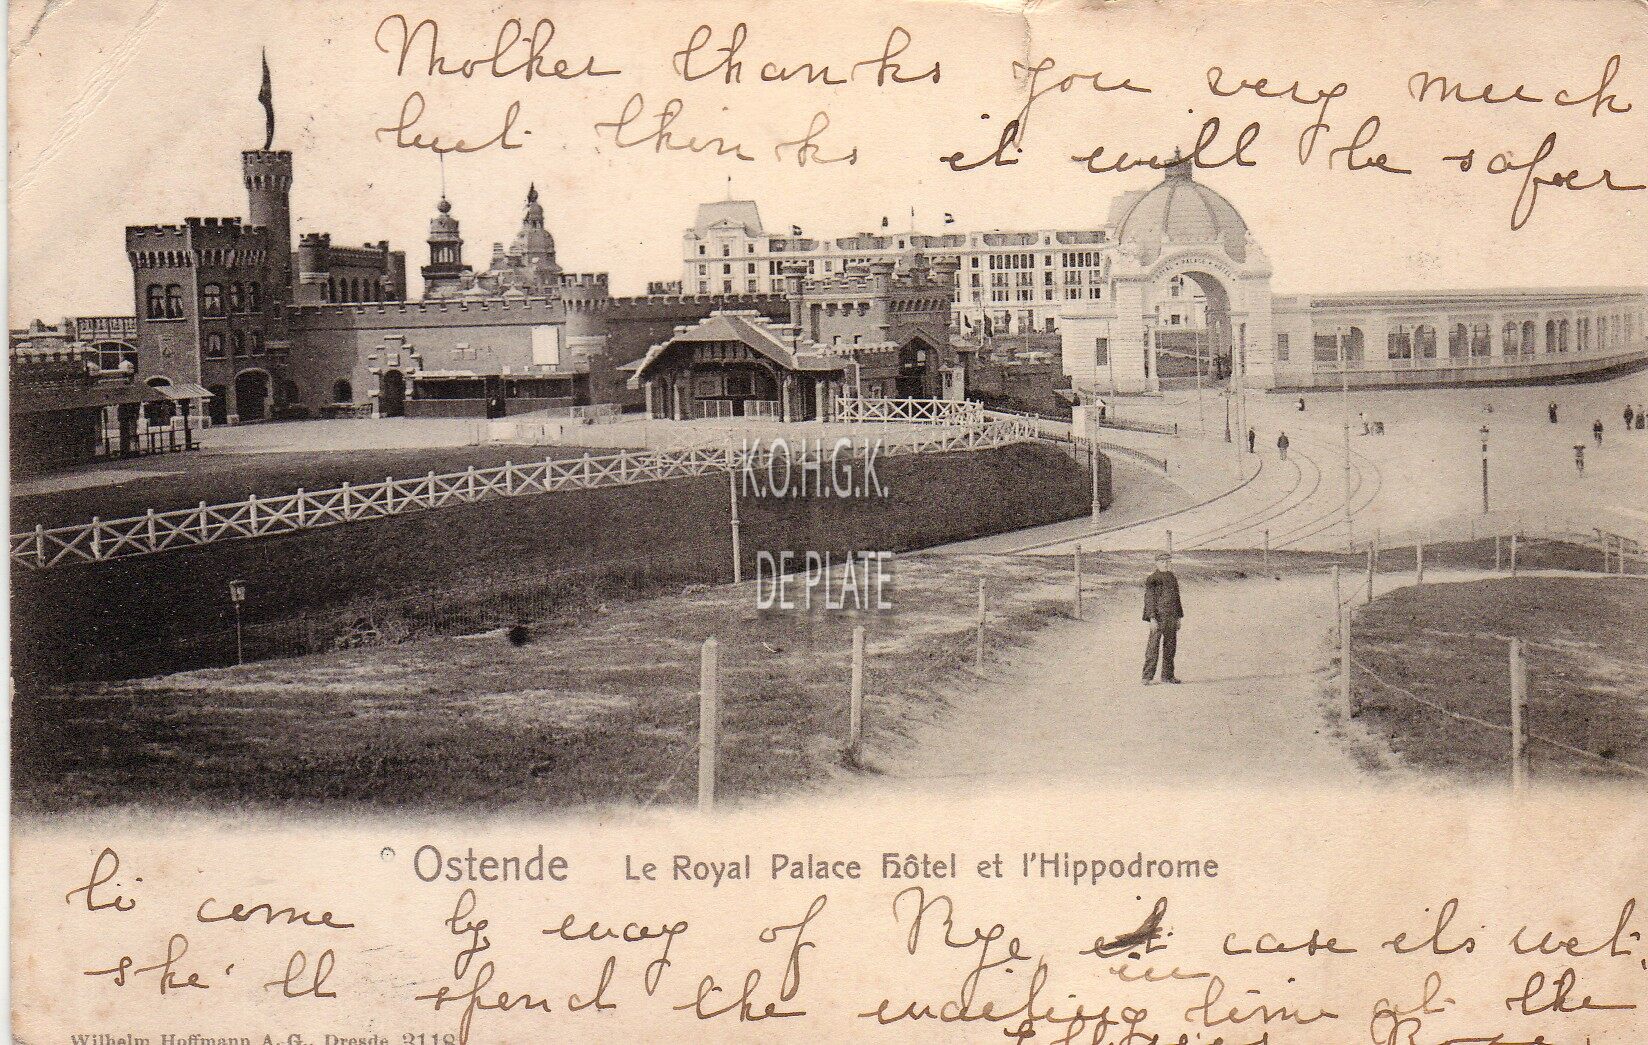 Mother thanks you very much
but thinks it will be safer
ROYAL PALACE HOTEL
K.O.H.G.K.
DE PLATE
Ostende Le Royal Palace Hôtel et l'Hippodrome
to come by way of Rye, it case its wet,
in
she'll spend the waiting time at the
Wilhelm Hoffmann A.-G., Dresde 3118